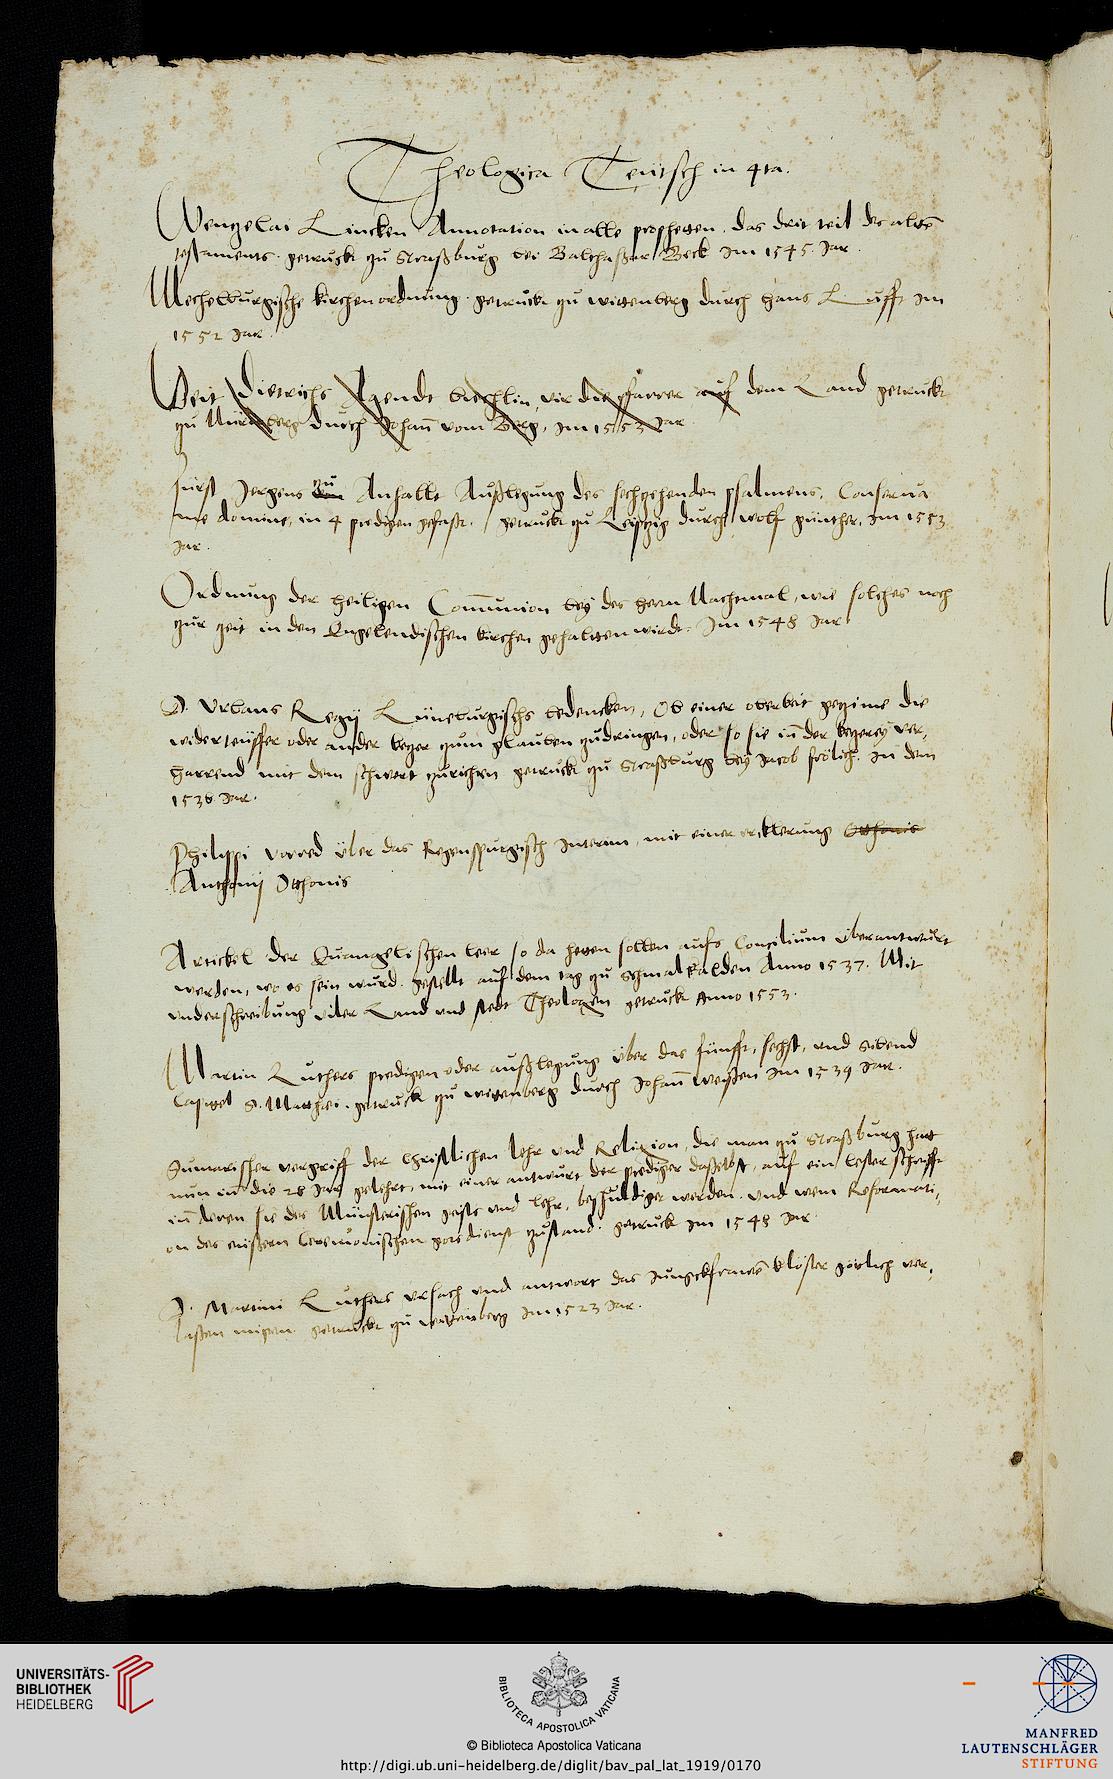 Theologica Teütsch in 4ta.
Wenzelai Lincken Annotation in alle propheten. das drit teil des altē
testaments. getruckt zu Straßburg bei Balthaßar Beck Im 1545 Jar.
Mechelburgische kirchenordnung. getruckt zu wittenberg durch Hans Lufft Im
1552 Jar.
Veit Dietrichs Agendt biechlin, vir die pfarrer auf dem Land getruckt
zu Nürmberg durch Johañ vom Berg, Im 1553 Jar
fürst Jergens zu Anhallt Außlegung des sechzehenden psalmens, Conserua
me domine, in 4 predigen gefaßt. getruckt zu Leiptzig durch wolf günther, Im 1553
Jar.
Ordnung der heiligen Com̄union bey des herrn Nachtmal, wie solches noch
zur zeit in den Engelendischen kirchen gehalten wirdt. Im 1548 Jar
D. Vrbans Regij Lüneburgischs bedencken, Ob einer oberkeit gezime die
widerteüffer oder ander ketzer zum glauben zudringen, oder so sie iñ der ketzerey ver,
harrend mit dem schwert zurichten getruckt zu Straßburg bey Jacob frölich. In dem
1538 Jar.
Philippi vorred über das Regenspurgisch Interim, mit einer erklerung Otthonis
Anthonij Otthonis
Artickel der Euangelischen leer so da hetten sollen aufs Concilium überantwurt
werden, wo es sein wurd. gestellt auf dem tag zu Schmalkalden Anno 1537. Mit
vnderschreibung viler Land vnd stedt Theologen getruckt Anno 1553.
Martin Luthers predigen oder außlegung über das fünfft, sechst, vnd sibend
Capitel S. Matthei. getruckt zu wittenberg durch Johañ weyßen Im 1539 Jar.
Sumarischer vergriff der Christlichen lehr vnd Religion, die man zu Straßburg hatt
nun iñ die 28 Jar gelehrt, mit einer antwurt der prediger daßelbst, auf ein lester schrifft
iñ deren sie des Münsterischen geists vnd lehr, beschuldiget werden. vnd wem Reformati,
on des eüßern Ceremonischen gotsdienst zustand. getruckt Im 1548 Jar
D. Martini Luthers vrsach vnd antwort das Jungckfrawē klöster götlich ver,
laßen mögen. getruckt zu wittenberg Im 1523 Jar.
UNIVERSITÄTS-
BIBLIOTHEK
HEIDELBERG
BIBLIOTECA APOSTOLICA VATICANA
© Biblioteca Apostolica Vaticana
http://digi.ub.uni-heidelberg.de/diglit/bav_pal_lat_1919/0170
MANFRED
LAUTENSCHLÄGER
STIFTUNG